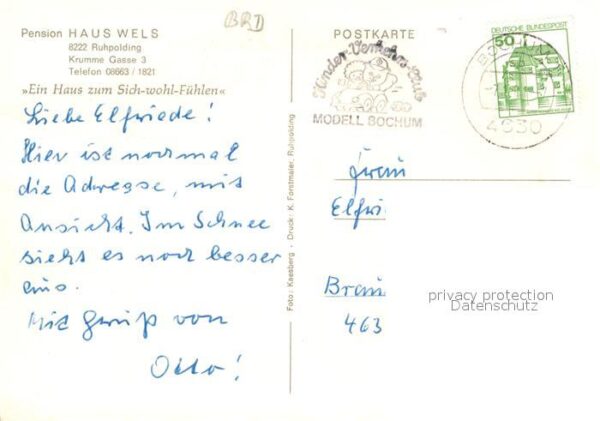 BRD
Pension HAUS WELS
8222 Ruhpolding
Krumme Gasse 3
Telefon 08663 / 1821
»Ein Haus zum Sich-wohl-Fühlen«
Liebe Elfriede!
Hier ist nochmal
die Adresse, mit
Ansicht. Im Schnee
sieht es noch besser
aus.
Mit Gruß von
Otto!
Foto: Kaesberg . Druck: K. Forstmaier, Ruhpolding
POSTKARTE
Kinder-Verkehrs-Club
MODELL BOCHUM
DEUTSCHE BUNDESPOST
50
BOCHUM
4630
Frau
Elfri
Brau
463
privacy protection
Datenschutz